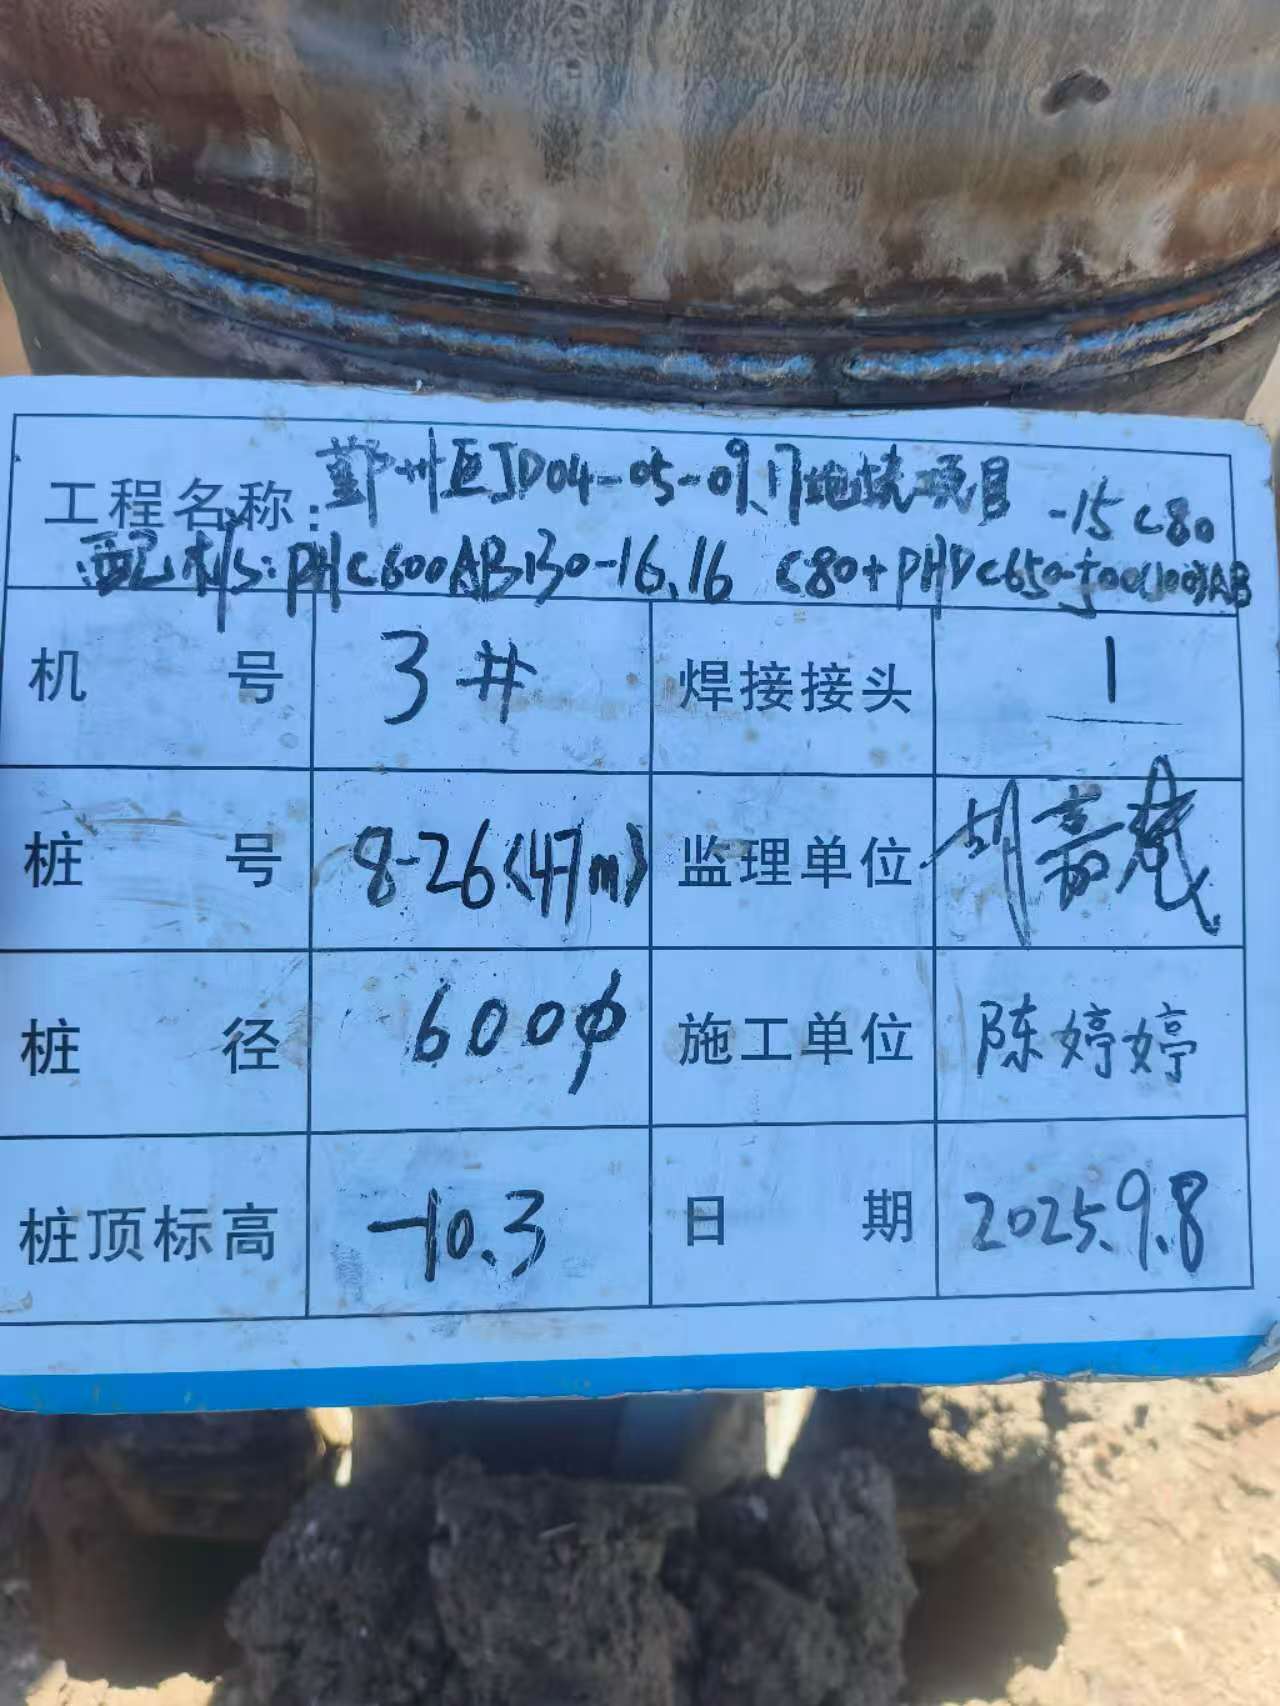 工程名称: 鄞州区JD04-05-09.17地块项目
-15 C80
配桩: PHC600AB130-16.16 C80+PHDC650-500(100)AB
机号 3# 焊接接头 1
桩号 8-26(47m) 监理单位 胡
桩径 600φ 施工单位 陈婷婷
桩顶标高 -10.3 日期 2025.9.8